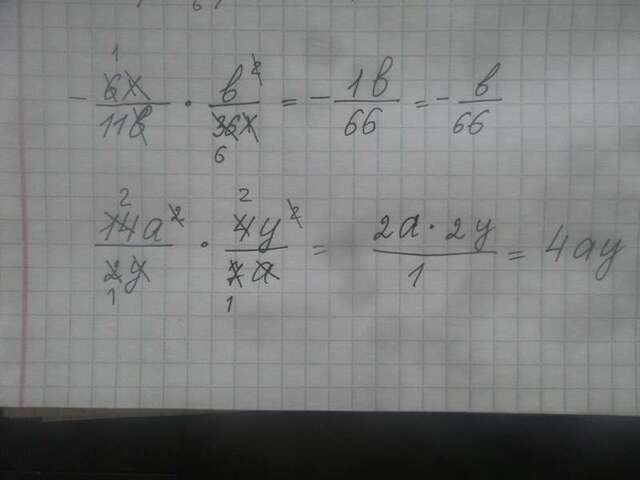 1
- 6x/11b · b²/36x = - 1b/66 = - b/66
6
2 2
14a²/2y · 4y²/7a = 2a·2y/1 = 4ay
1 1